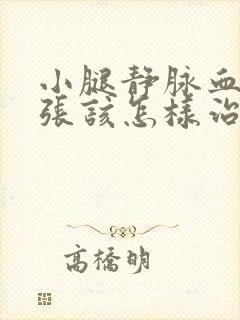 小腿静脉血
張該怎樣治
高橋明